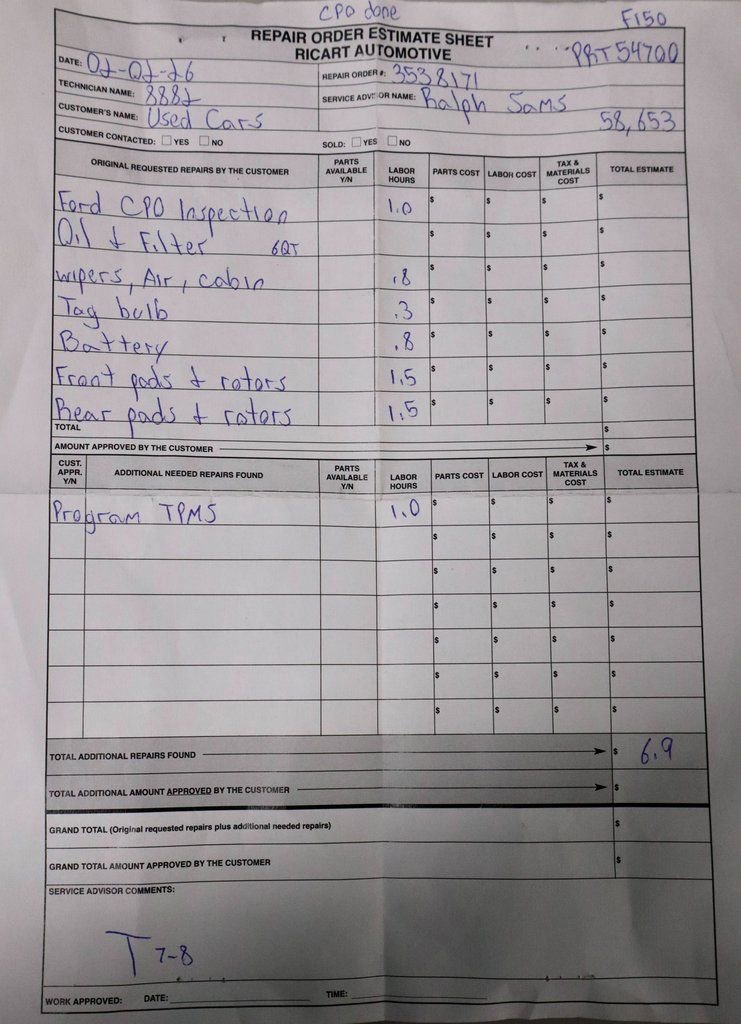 CPO done
F150
REPAIR ORDER ESTIMATE SHEET
RICART AUTOMOTIVE
PRT 54700
DATE: 02-02-26
REPAIR ORDER #: 3538171
TECHNICIAN NAME: 8882
SERVICE ADVISOR NAME: Ralph Sams
CUSTOMER'S NAME: Used Cars
58,653
CUSTOMER CONTACTED: ☐ YES ☐ NO
SOLD: ☐ YES ☐ NO
ORIGINAL REQUESTED REPAIRS BY THE CUSTOMER PARTS AVAILABLE Y/N LABOR HOURS PARTS COST LABOR COST TAX & MATERIALS COST TOTAL ESTIMATE
Ford CPO Inspection 1.0 $ $ $ $
Oil & Filter 6QT $ $ $ $
wipers, Air, cabin .8 $ $ $ $
Tag bulb .3 $ $ $ $
Battery .8 $ $ $ $
Front pads & rotors 1.5 $ $ $ $
Rear pads & rotors 1.5 $ $ $ $
TOTAL $
AMOUNT APPROVED BY THE CUSTOMER $
CUST. APPR. Y/N ADDITIONAL NEEDED REPAIRS FOUND PARTS AVAILABLE Y/N LABOR HOURS PARTS COST LABOR COST TAX & MATERIALS COST TOTAL ESTIMATE
Program TPMS 1.0 $ $ $ $
$ $ $ $
$ $ $ $
$ $ $ $
$ $ $ $
$ $ $ $
$ $ $ $
TOTAL ADDITIONAL REPAIRS FOUND $ 6.9
TOTAL ADDITIONAL AMOUNT APPROVED BY THE CUSTOMER $
GRAND TOTAL (Original requested repairs plus additional needed repairs) $
GRAND TOTAL AMOUNT APPROVED BY THE CUSTOMER $
SERVICE ADVISOR COMMENTS:
T 7-8
WORK APPROVED: DATE: TIME: